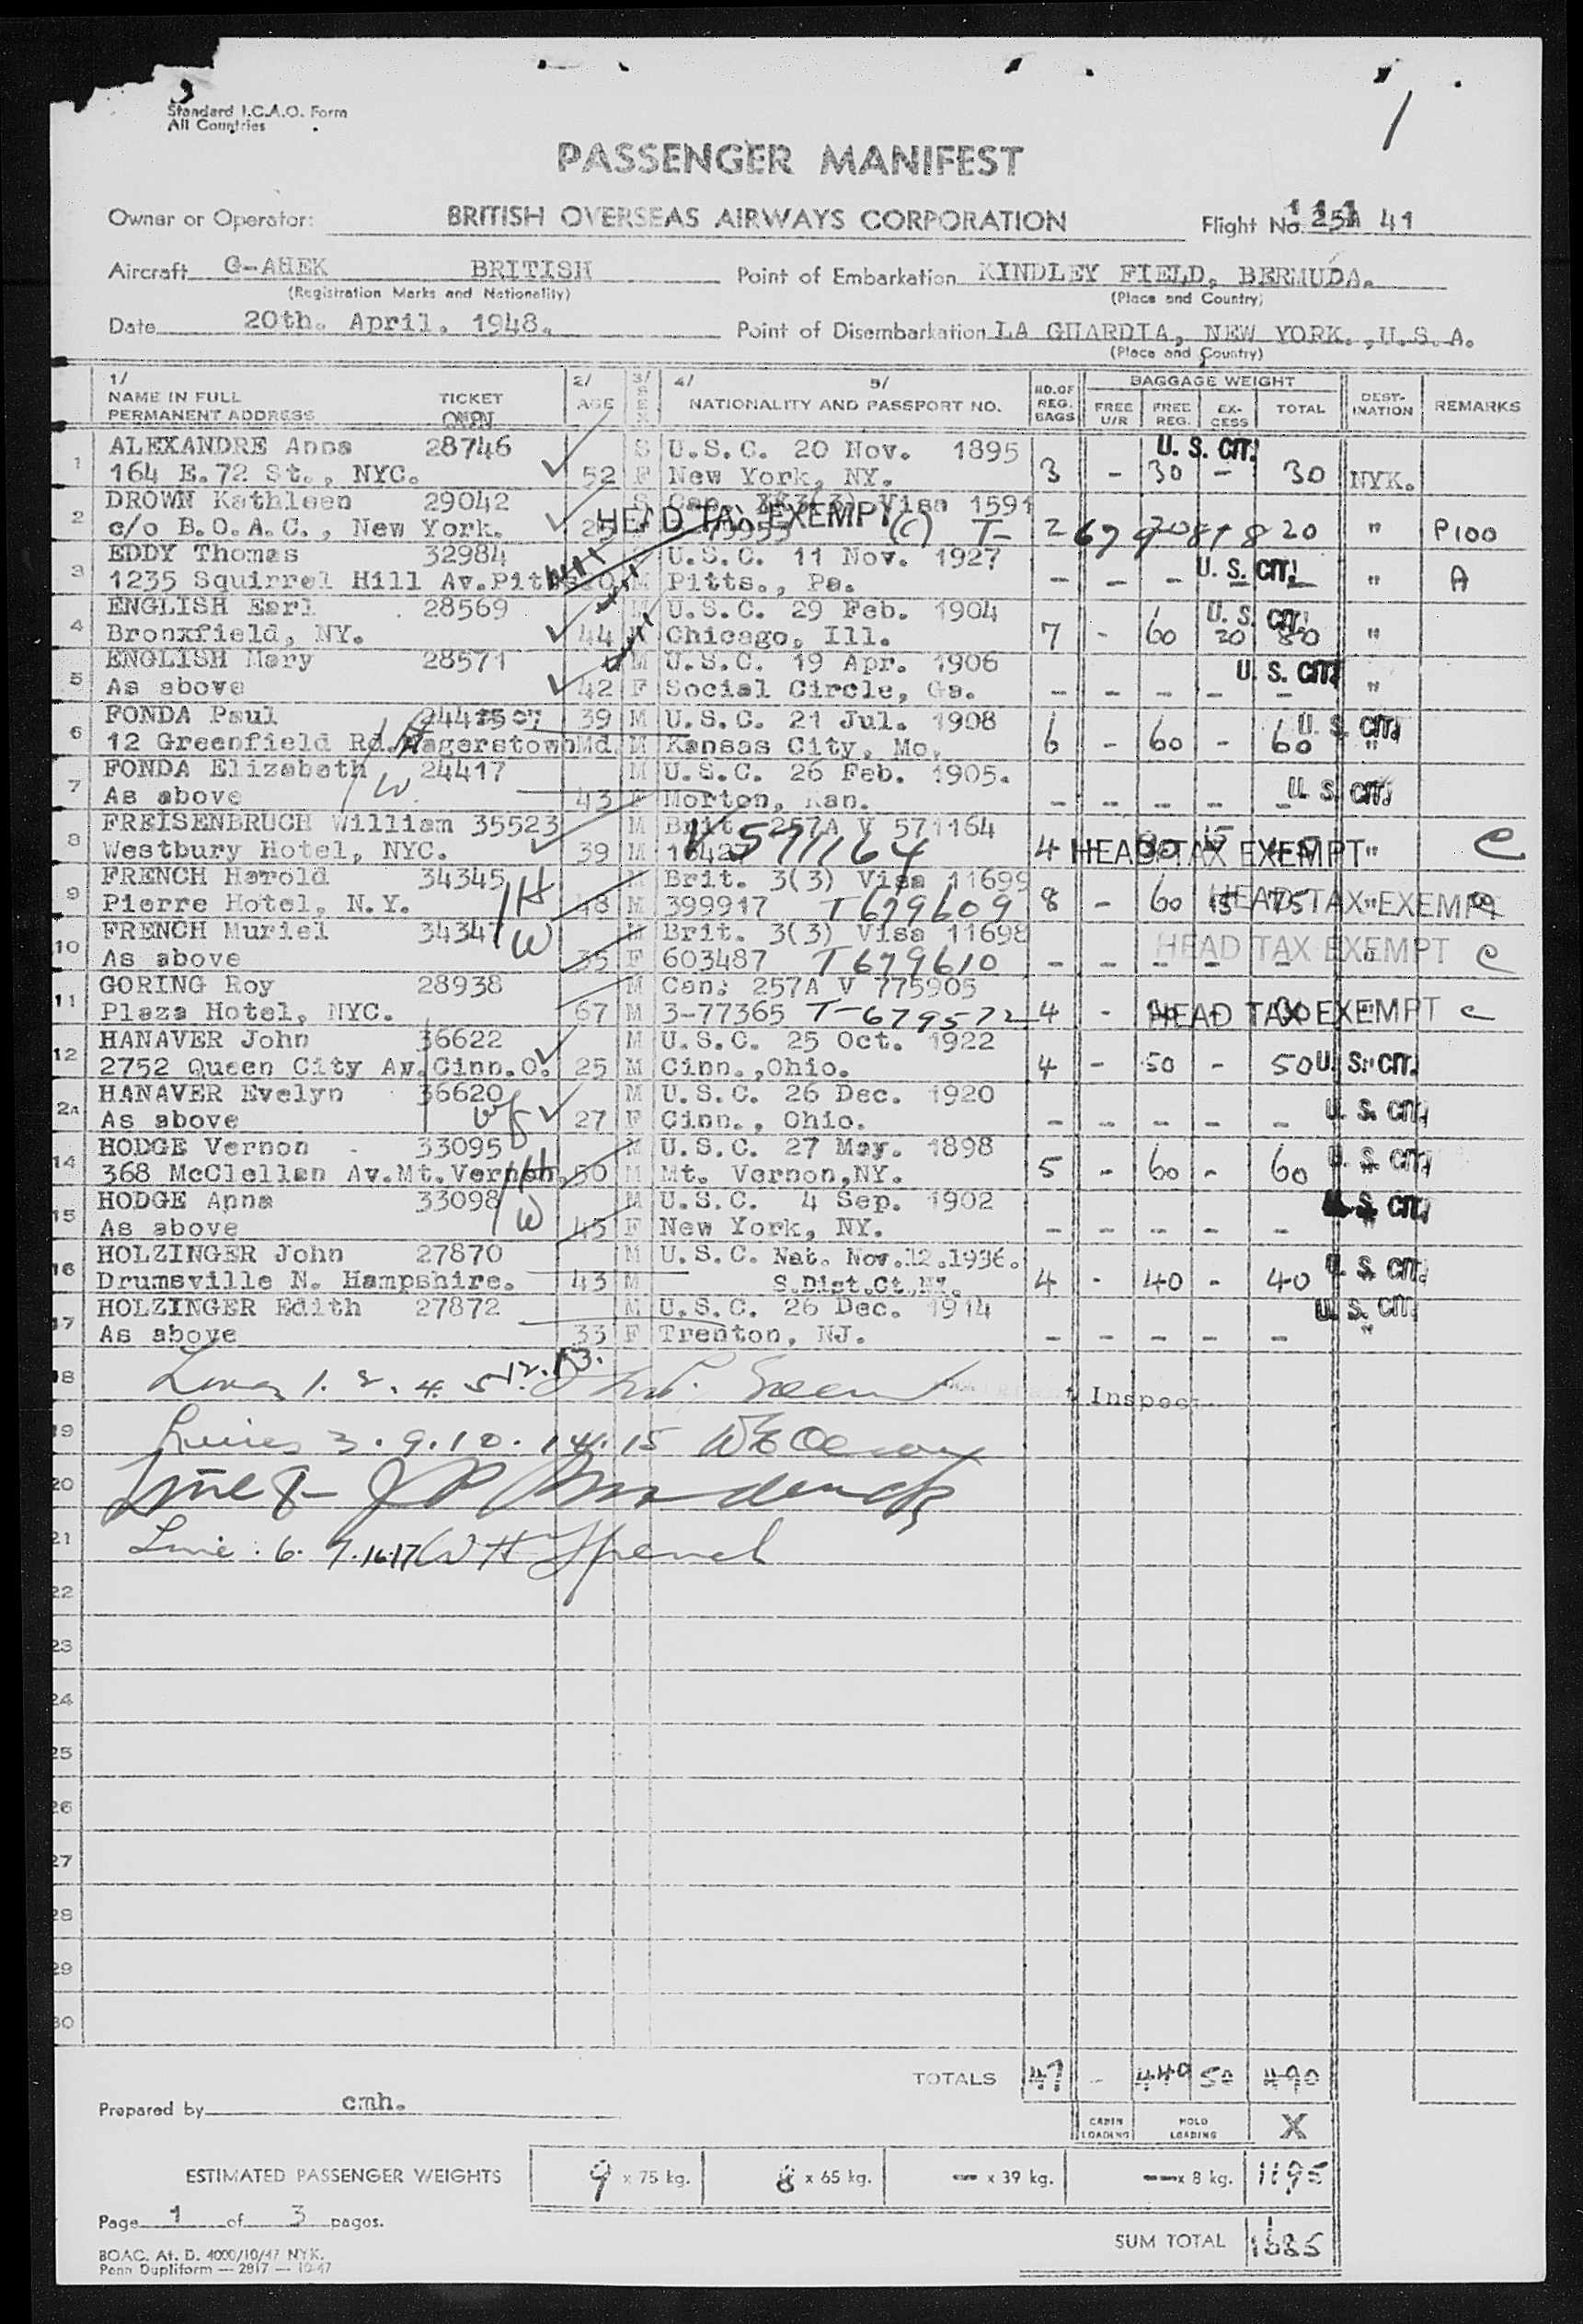 Standard I.C.A.O. Form
All Countries
1
PASSENGER MANIFEST
Owner or Operator: BRITISH OVERSEAS AIRWAYS CORPORATION Flight No. 41
Aircraft G-AHEK BRITISH Point of Embarkation KINDLEY FIELD, BERMUDA.
(Registration Marks and Nationality) (Place and Country)
Date 20th. April. 1948. Point of Disembarkation LA GUARDIA, NEW YORK., U.S.A.
(Place and Country)
1/ 2/ 3/ 4/ 5/ NO. OF BAGGAGE WEIGHT DEST-
NAME IN FULL TICKET AGE SEX NATIONALITY AND PASSPORT NO. REG. FREE FREE EX- TOTAL INATION REMARKS
PERMANENT ADDRESS BAGS U/R REG. CESS
1 ALEXANDRE Anna 28746 S U.S.C. 20 Nov. 1895 U. S. CIT.
164 E.72 St., NYC. 52 F New York, NY. 3 - 30 - 30 NYK.
2 DROWN Kathleen 29042 S 3(3) Visa 1591
c/o B.O.A.C., New York. HEAD TAX EXEMPT (C) T- 2 20 " P100
3 EDDY Thomas 32984 U.S.C. 11 Nov. 1927 U. S. CIT.
1235 Squirrel Hill Av. M Pitts., Pa. - - - - - " A
4 ENGLISH Earl 28569 M U.S.C. 29 Feb. 1904 U. S. CIT.
Bronxfield, NY. 44 M Chicago, Ill. 7 - 60 20 80 "
5 ENGLISH Mary 28571 M U.S.C. 19 Apr. 1906 U. S. CIT.
As above 42 F Social Circle, Ga. - - - - - "
6 FONDA Paul 39 M U.S.C. 21 Jul. 1908 U. S. CIT.
12 Greenfield Rd. Hagerstown Md. M Kansas City, Mo. 6 - 60 - 60 "
7 FONDA Elizabeth 24417 M U.S.C. 26 Feb. 1905. U. S. CIT.
As above W 43 F Morton, Kan. - - - - -
8 FREISENBRUCH William 35523 M Brit. 257A V 571164
Westbury Hotel, NYC. 39 M V 571164 4 HEAD TAX EXEMPT " C
9 FRENCH Harold 34345 H M Brit. 3(3) Visa 11699
Pierre Hotel, N.Y. 48 M 399917 T679609 8 - 60 15 75 HEAD TAX EXEMPT
10 FRENCH Muriel 34347 W M Brit. 3(3) Visa 11698
As above 35 F 603487 T679610 - - - - - HEAD TAX EXEMPT C
11 GORING Roy 28938 M Can. 257A V 775905
Plaza Hotel, NYC. 67 M 3-77365 T-679572 4 - - HEAD TAX EXEMPT C
12 HANAVER John 36622 M U.S.C. 25 Oct. 1922
2752 Queen City Av. Cinn.O. 25 M Cinn.,Ohio. 4 - 50 - 50 U. S. CIT.
HANAVER Evelyn 36620 M U.S.C. 26 Dec. 1920
As above wf 27 F Cinn., Ohio. - - - - - U. S. CIT.
14 HODGE Vernon 33095 M U.S.C. 27 May. 1898
368 McClellan Av.Mt.Vernon H 50 M Mt. Vernon,NY. 5 - 60 - 60 U. S. CIT.
15 HODGE Anna 33098 M U.S.C. 4 Sep. 1902 U. S. CIT.
As above W 45 F New York, NY. - - - - - "
16 HOLZINGER John 27870 M U.S.C. Nat. Nov.12.1936.
Drumsville N. Hampshire. 43 M S.Dist.Ct.,NY. 4 - 40 - 40 U. S. CIT.
17 HOLZINGER Edith 27872 M U.S.C. 26 Dec. 1914 U. S. CIT.
As above 33 F Trenton, NJ. - - - - - "
18 Lines 1. 2. 4. 5. 12. 13. Inspect.
19 Lines 3. 9. 10. 14. 15
20 Line 8
21 Line: 6. 7. 16. 17 W H French
22
23
24
25
26
27
28
29
30
TOTALS 47 - 440 50 490
Prepared by cmh.
CABIN LOADING HOLD LOADING X
ESTIMATED PASSENGER WEIGHTS 9 x 75 kg. 8 x 65 kg. — x 39 kg. — x 8 kg. 1195
Page 1 of 3 pages.
SUM TOTAL 1685
BOAC. At. D. 4000/10/47 NYK.
Penn Dupliform — 2817 — 10-47